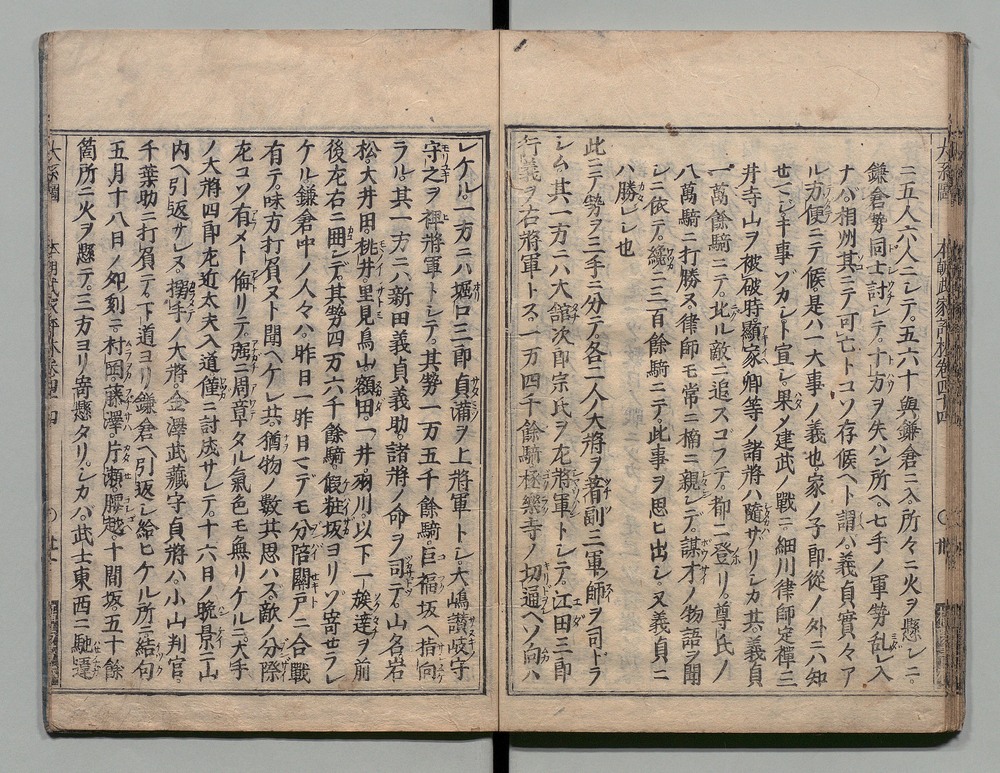 二五人六人ニシテ。五六十與鎌倉ニ入所々ニ火ヲ懸シニ。
鎌倉勢同士討シテ。十方ヲ失ハン所ヘ。七手ノ軍勢乱レ入
ナハ。相州其ニテ可亡トコソ存候ヘト謂ハ。義貞實々ア
ル方便ニテ候。是ハ一大事ノ義也。家ノ子郎従ノ外ニハ知
セマシキ事ゾカシト宣シ。果メ建武ノ戰ニ。細川律師定禪三
井寺山ヲ破破時顯家卿等ノ諸將ハ隨サリシカ共。義貞
一萬餘騎ニテ。北ル敵ニ追スゴフテ。都ニ登リ。尊氏ノ
八萬騎ニ打勝ス。律師モ常ニ楠ニ親シテ。謀才ノ物語ヲ聞
シニ依テ。纔ニ三百餘騎ニテ。此事ヲ思ヒ出シ。又義貞ニ
ハ勝シ也
此ニテ勢ヲ三手ニ分テ。各二人大將ヲ著副三軍師ヲ司ドラ
シム。其一方ニハ大舘次郎宗氏ヲ左將軍トシテ。江田三郎
行義ヲ右將軍トス。一万四千餘騎極樂寺ノ切通ヘソ向ハ
レケル。一方ニハ堀口三郎貞満ヲ上將軍トシ。大嶋讃岐守
守之ヲ裨將軍トシテ。其勢一万五千餘騎。巨福坂ヘ指向
ラル。其一方ニハ新田義貞義助。諸將ノ命ヲ司テ。山名岩
松。大井田。桃井里見鳥山額田。一井。羽川。以下一族達ヲ前
後左右ニ囲シテ。其勢四万六千餘騎。假粧坂ヨリソ寄セラレ
ケル鎌倉中ノ人々ハ。昨日一昨日マテモ分陪關戸ニ合戰
有テ。味方打負ヌト聞ヘケレ共。猶物ノ數共思ハズ。敵ノ分際
左コソ有メト侮リテ。强ニ周章タル氣色モ無リケルニ。大手
ノ大將四郎左近太夫入道僅ニ討成サレテ。十六日ノ晩景ニ山
内ヘ引返サレヌ。搦手ノ大將。金澤武藏守貞將ハ。小山判官。
千葉助ニ打負テ。下道ヨリ鎌倉ヘ引返シ給ヒケル所ニ。結句
五月十八日ノ夘刻ニ。村岡。藤澤。片瀬。腰越。十間坂。五十餘
箇所ニ火ヲ懸テ。三方ヨリ寄懸タリ。シカハ。武士東西ニ馳